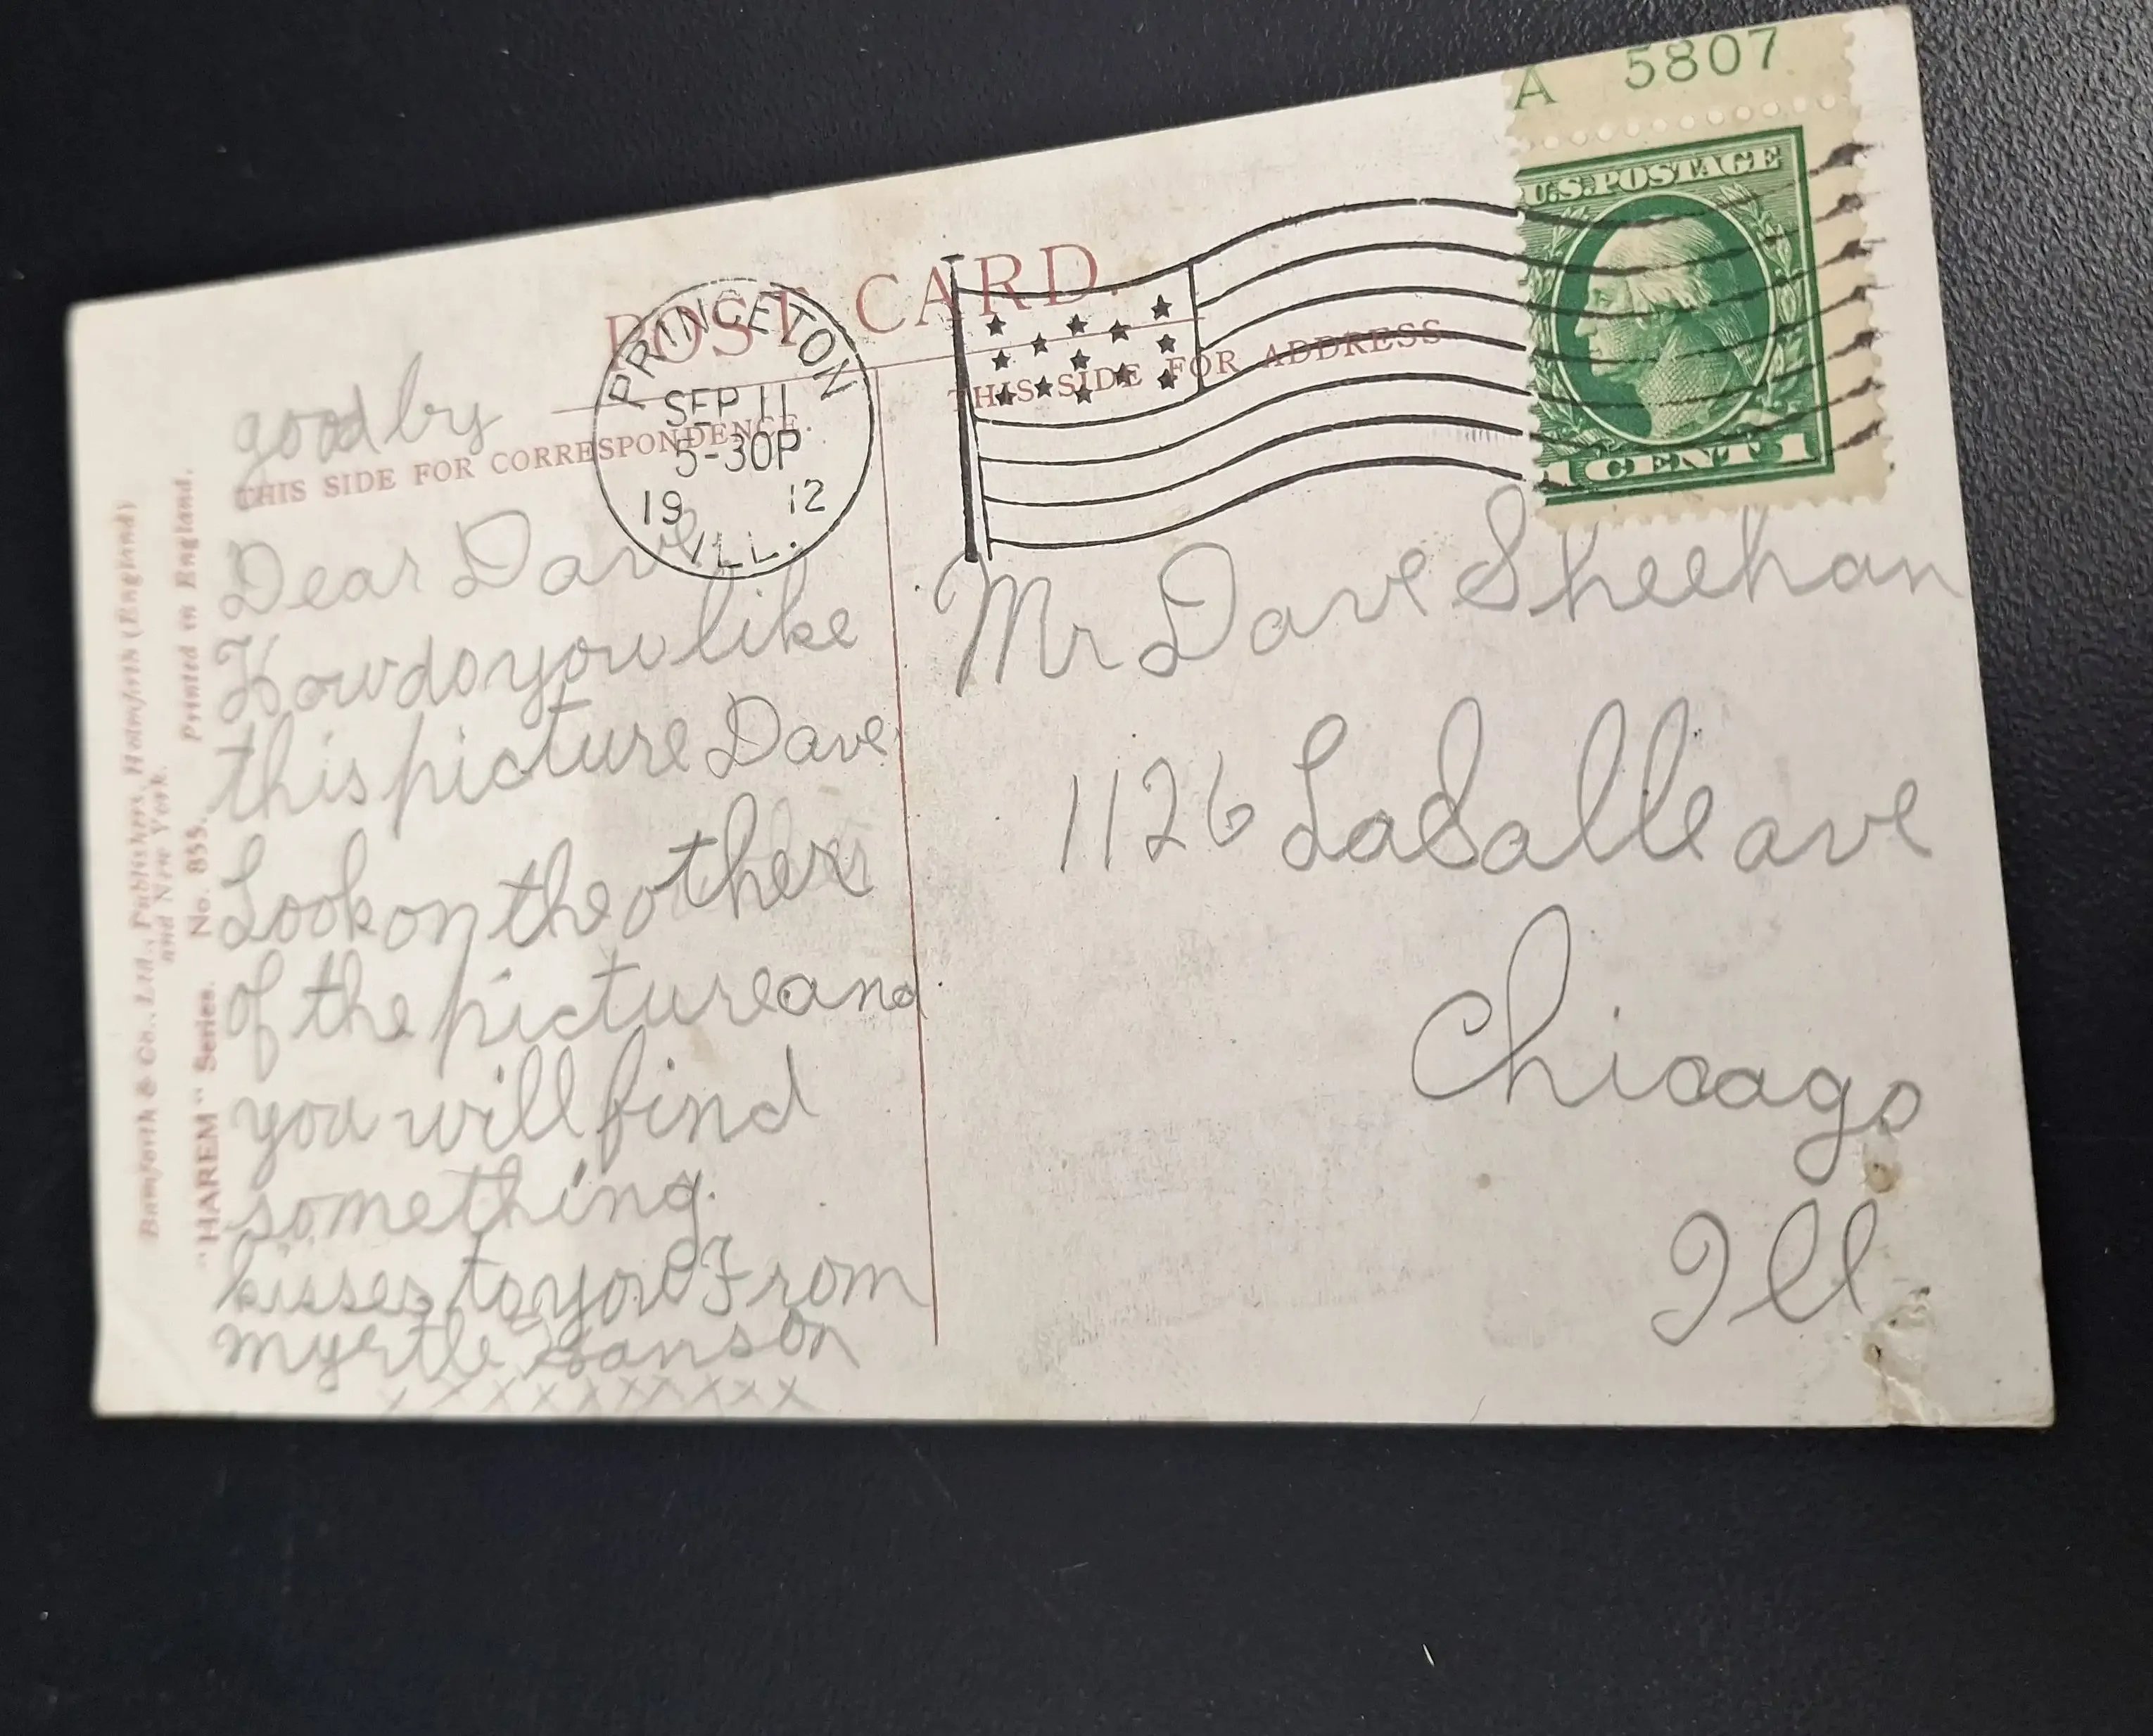 A 5807
U.S. POSTAGE
1 CENT 1
POST CARD.
THIS SIDE FOR CORRESPONDENCE.
THIS SIDE FOR ADDRESS
PRINCETON
SEP 11
5-30P
19 12
ILL.
good by
Dear Dave
How do you like
this picture Dave
Look on the other
of the picture and
you will find
something.
kisses to you From
myrtle Hanson
x x x x x x x x x x
Mr Dave Sheehan
1126 LaSalle ave
Chicago
Ill
Bamforth & Co., Ltd., Publishers, Holmfirth (England)
and New York.
"HAREM" Series. No. 855. Printed in England.